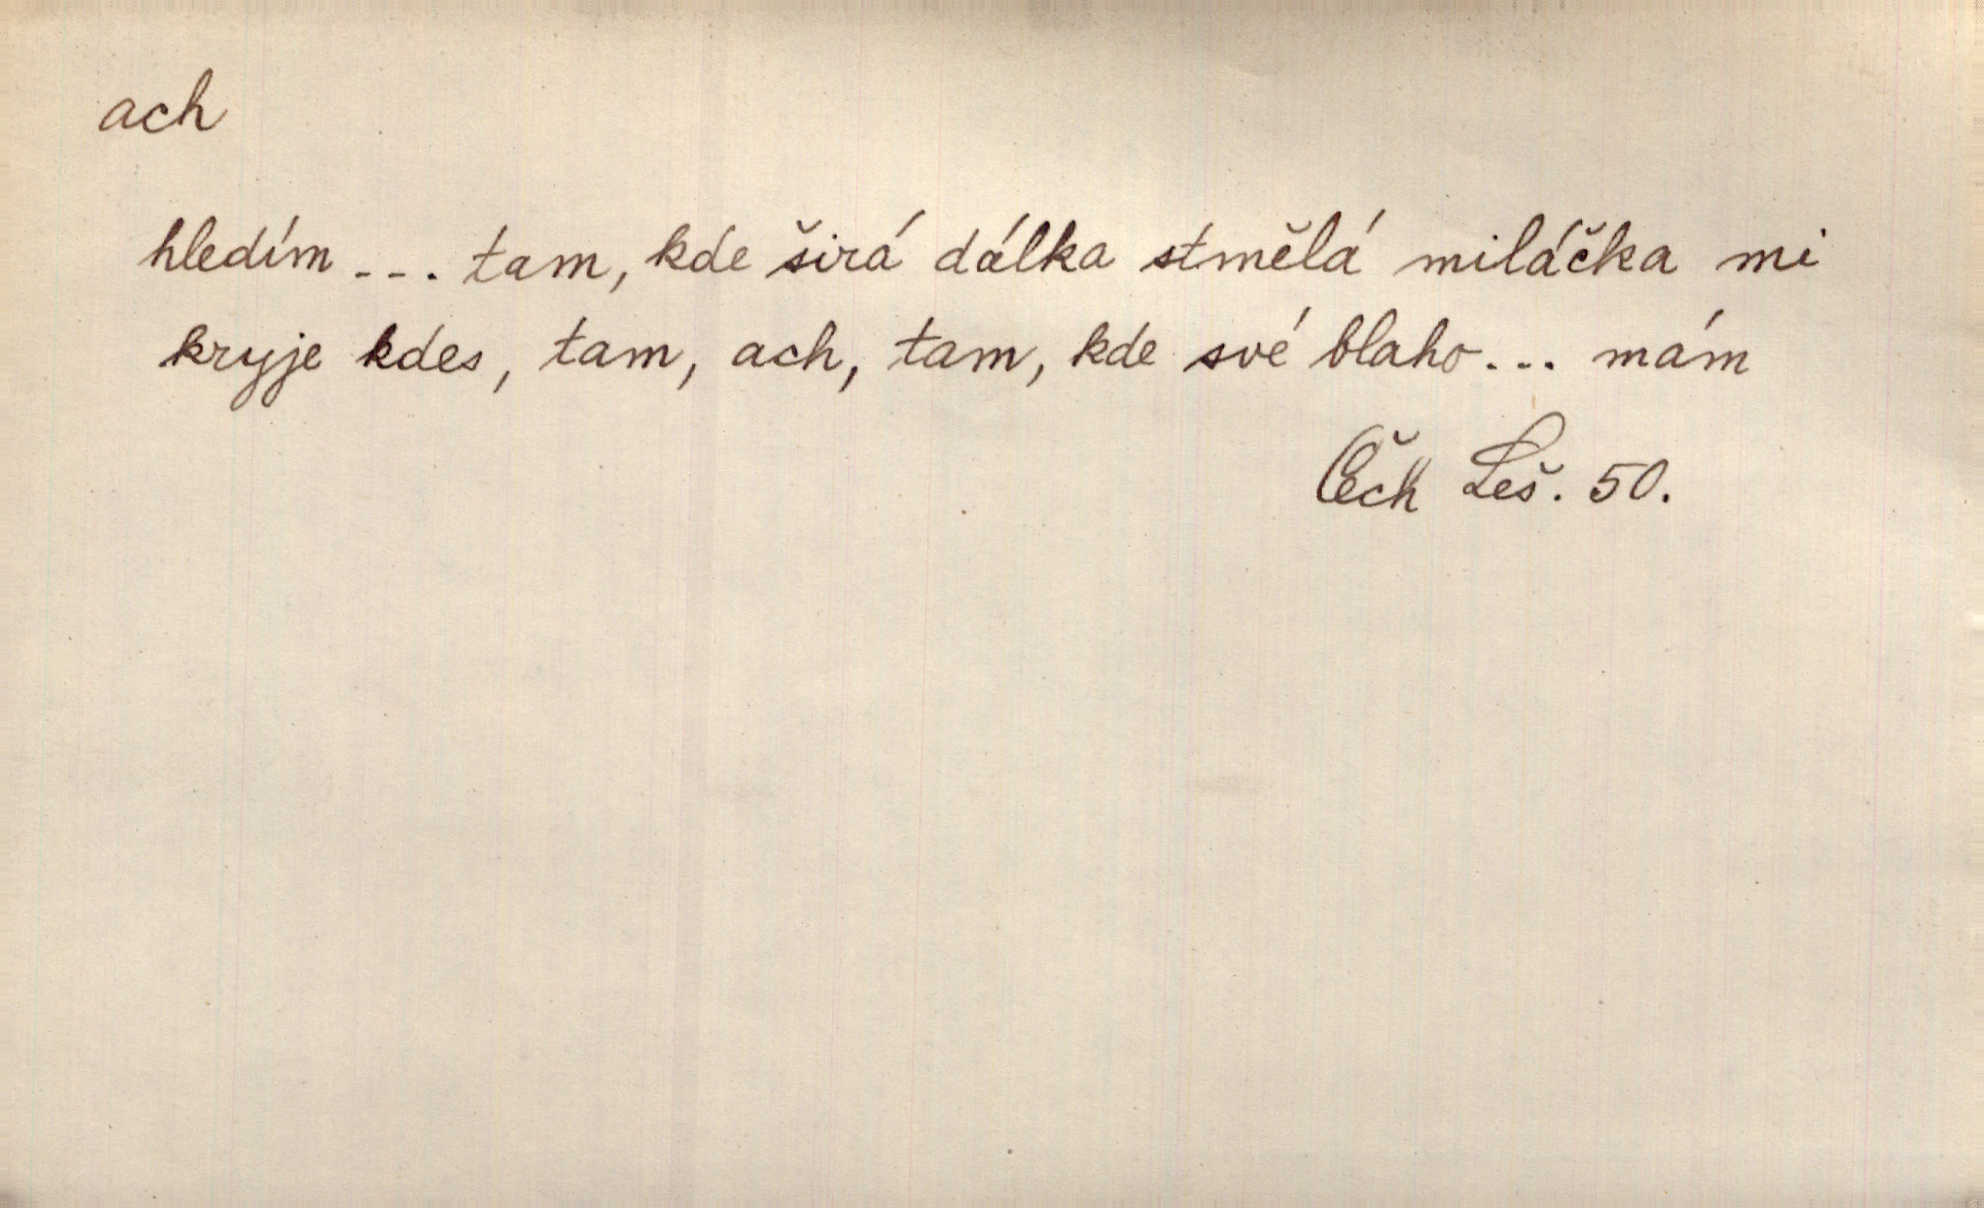 ach
hledím ... tam, kde širá dálka stmělá miláčka mi
kryje kdes, tam, ach, tam, kde své blaho... mám
Čech Leš. 50.